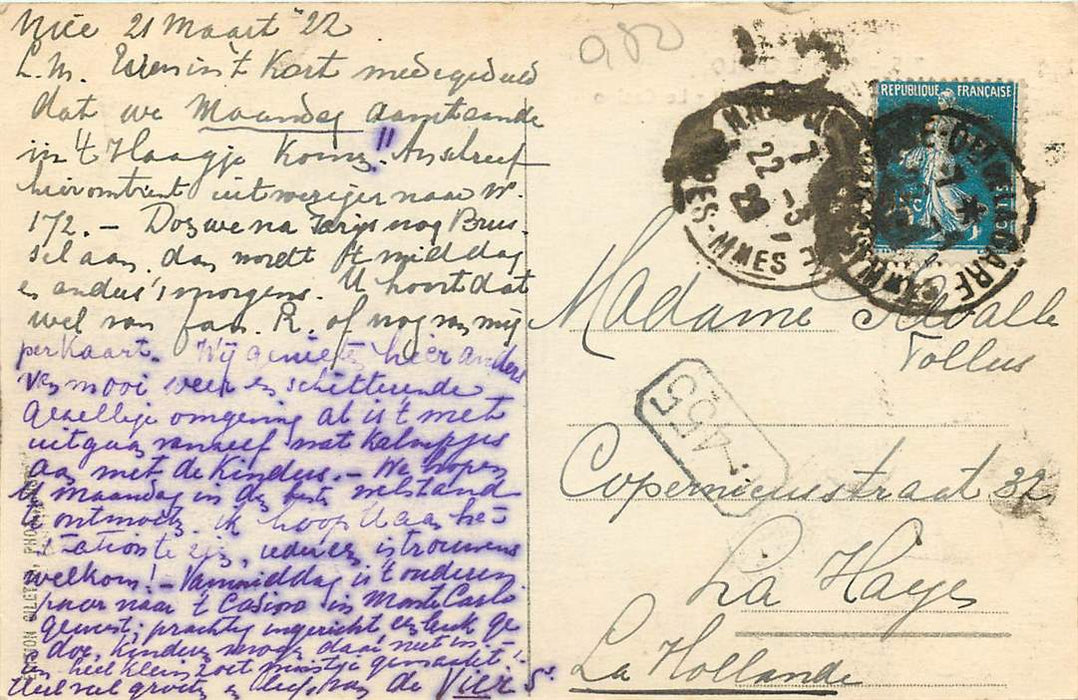 Nice 21 Maart '22
L.M. Even in 't kort medegedeeld
dat we Maandag aanstaande
in 't Haagje komen!! Ik schreef
hieromtrent uitvoeriger naar W.
172. — Doen we na Parijs nog Brus-
sel aan, dan wordt 't middag
en anders 's morgens. U hoort dat
wel van R. of nog van mij
per kaart. Wij genieten hier anders
van mooi weer en schitterende
gezellige omgeving al is 't met
uitgaan vanzelf wat kalmpjes
aan met de kinders. — We hopen
U Maandag in de beste welstand
te ontmoeten, ik hoop U aan het
station te zien, iedereen is trouwens
welkom! — Vanmiddag is 't ouderen
paar naar 't Casino in Monte Carlo
geweest; prachtig ingericht en leuk ge-
daan, kinders mogen daar niet in.
een heel klein zoet winstje gemaakt!
Heel veel groeten en liefs van de Vier S.
EDITION GILETTA, PHOT
980
REPUBLIQUE FRANÇAISE
7
22 -3
22
NICE
GARE
Madame
Tollus
Copernicusstraat 32
La Haye
La Hollande
455